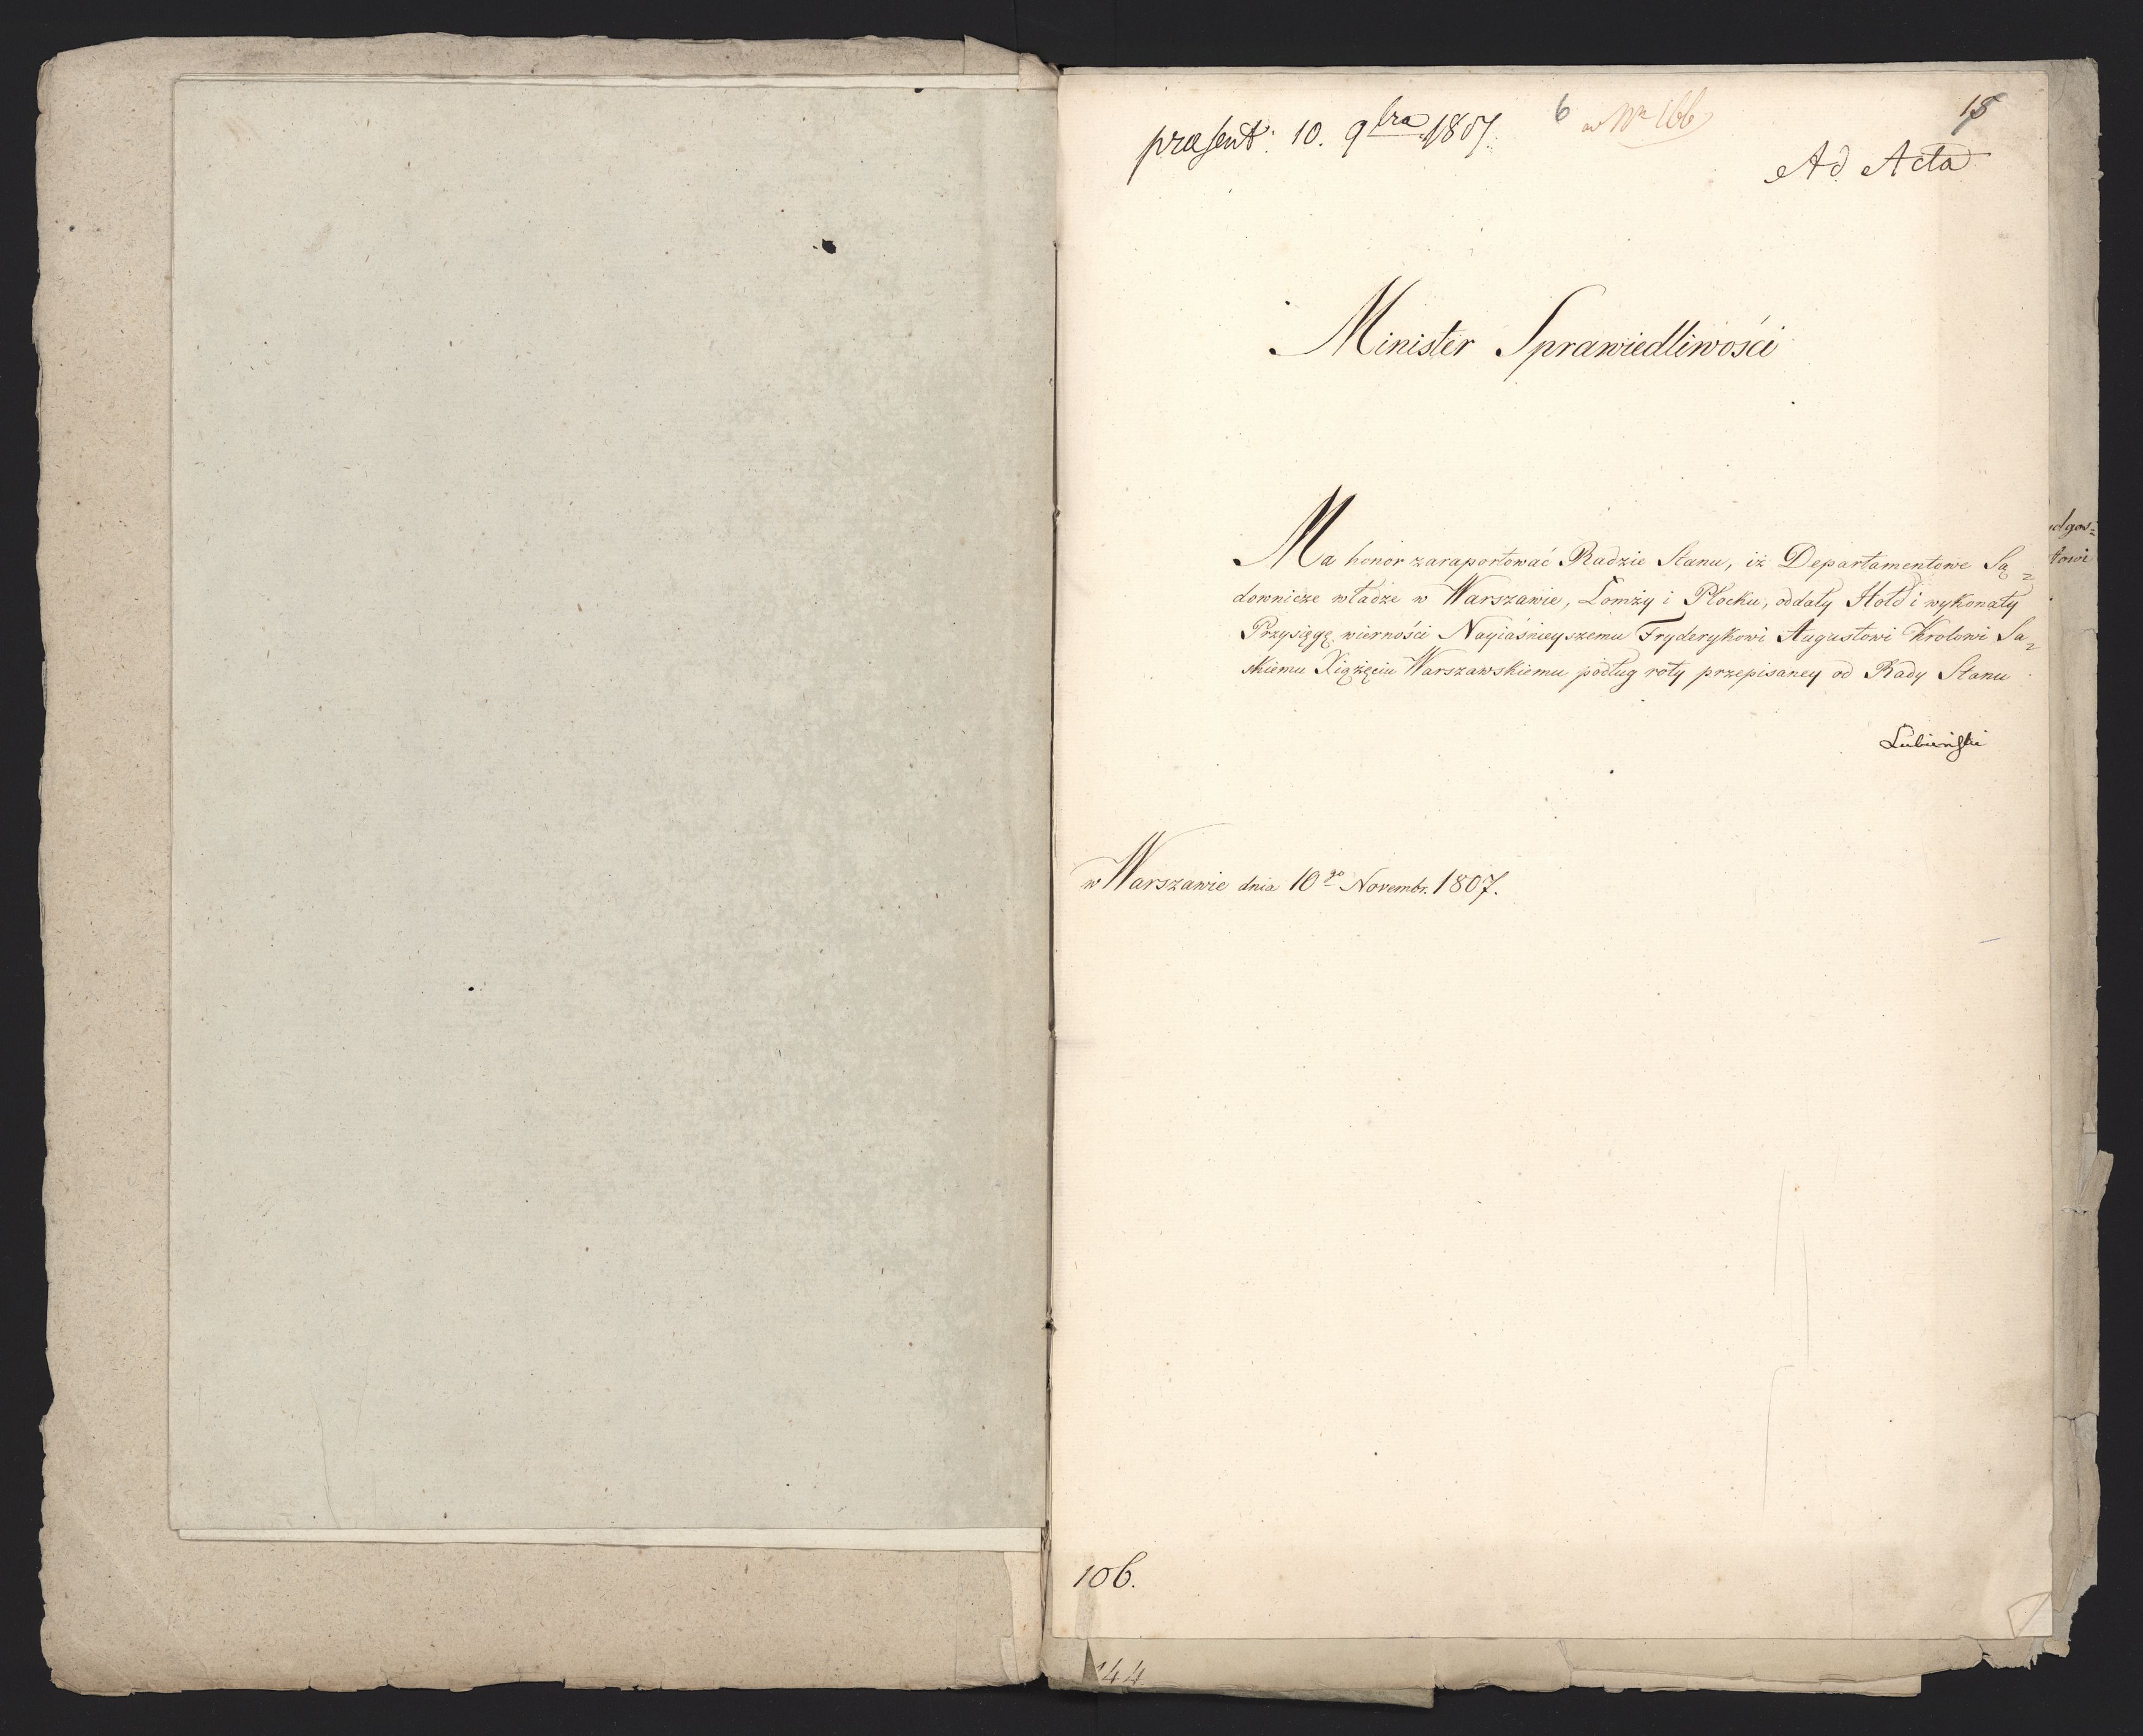 præsent: 10. 9bra 1807.
6
ad Nr 166
15
Ad Acta
Minister Sprawiedliwości
Ma honor zaraportować Radzie Stanu, iż Departamentowe Są=
downicze władze w Warszawie, Łomży i Płocku, oddały Hołd i wykonały
Przysięgę wierności Nayiaśnieyszemu Fryderykowi Augustowi Krolowi Sa=
skiemu Xiążęciu Warszawskiemu podług roty przepisaney od Rady Stanu
Lubieński
w Warszawie dnia 10go Novembr. 1807.
106.
144